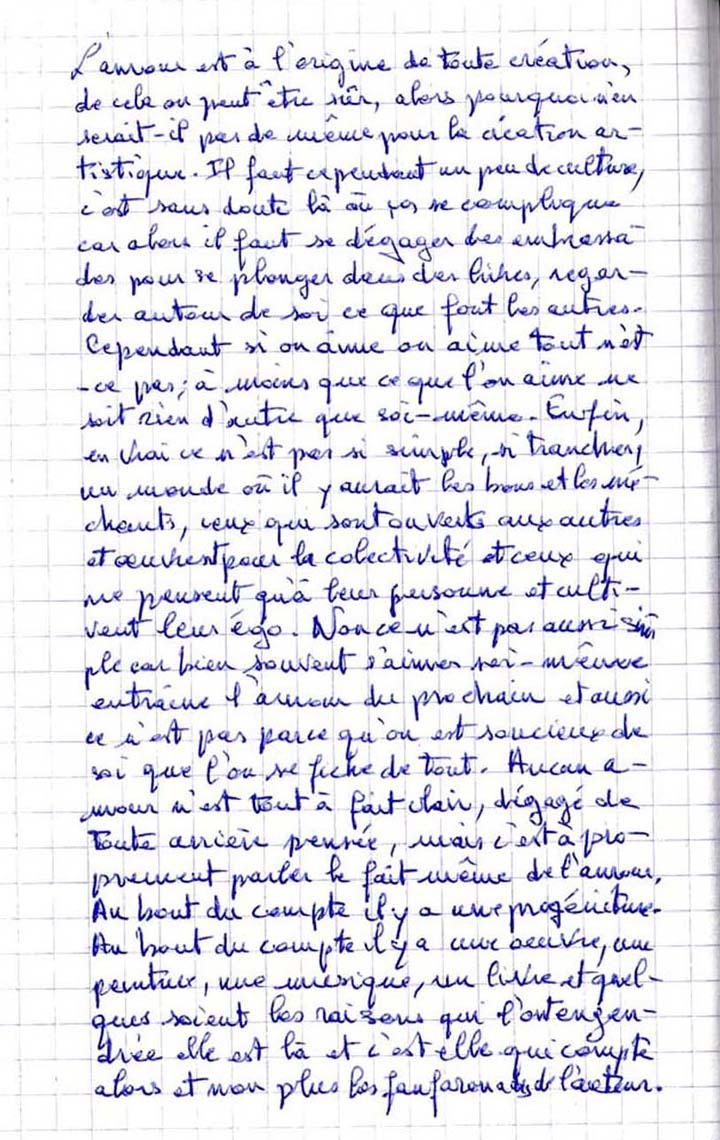 L'amour est à l'origine de toute création,
de cela on peut être sûr, alors pourquoi n'en
serait-il pas de même pour la création ar-
tistique. Il faut cependant un peu de culture,
c'est sans doute là où ça se complique
car alors il faut se dégager des embrassa-
des pour se plonger dans des livres, regar-
der autour de soi ce que font les autres.
Cependant si on aime on aime tout n'est
-ce pas; à moins que ce que l'on aime ne
soit rien d'autre que soi-même. Enfin,
en vrai ce n'est pas si simple, si trancher,
un monde où il y aurait les bons et les mé-
chants, ceux qui sont ouverts aux autres
et œuvrent pour la colectivité et ceux qui
ne pensent qu'à leur personne et culti-
vent leur égo. Non ce n'est pas aussi sim
ple car bien souvent s'aimer soi-même
entraîne l'amour du prochain et aussi
ce n'est pas parce qu'on est soucieux de
soi que l'on se fiche de tout. Aucun a-
mour n'est tout à fait clair, dégagé de
toute arrière pensée, mais c'est à pro-
prement parler le fait même de l'amour.
Au bout du compte il y a une progéniture.
Au bout du compte il y a une oeuvre, une
peinture, une musique, un livre et quel-
ques soient les raisons qui l'ont engen-
drée elle est là et c'est elle qui compte
alors et non plus les fanfaronades de l'acteur.